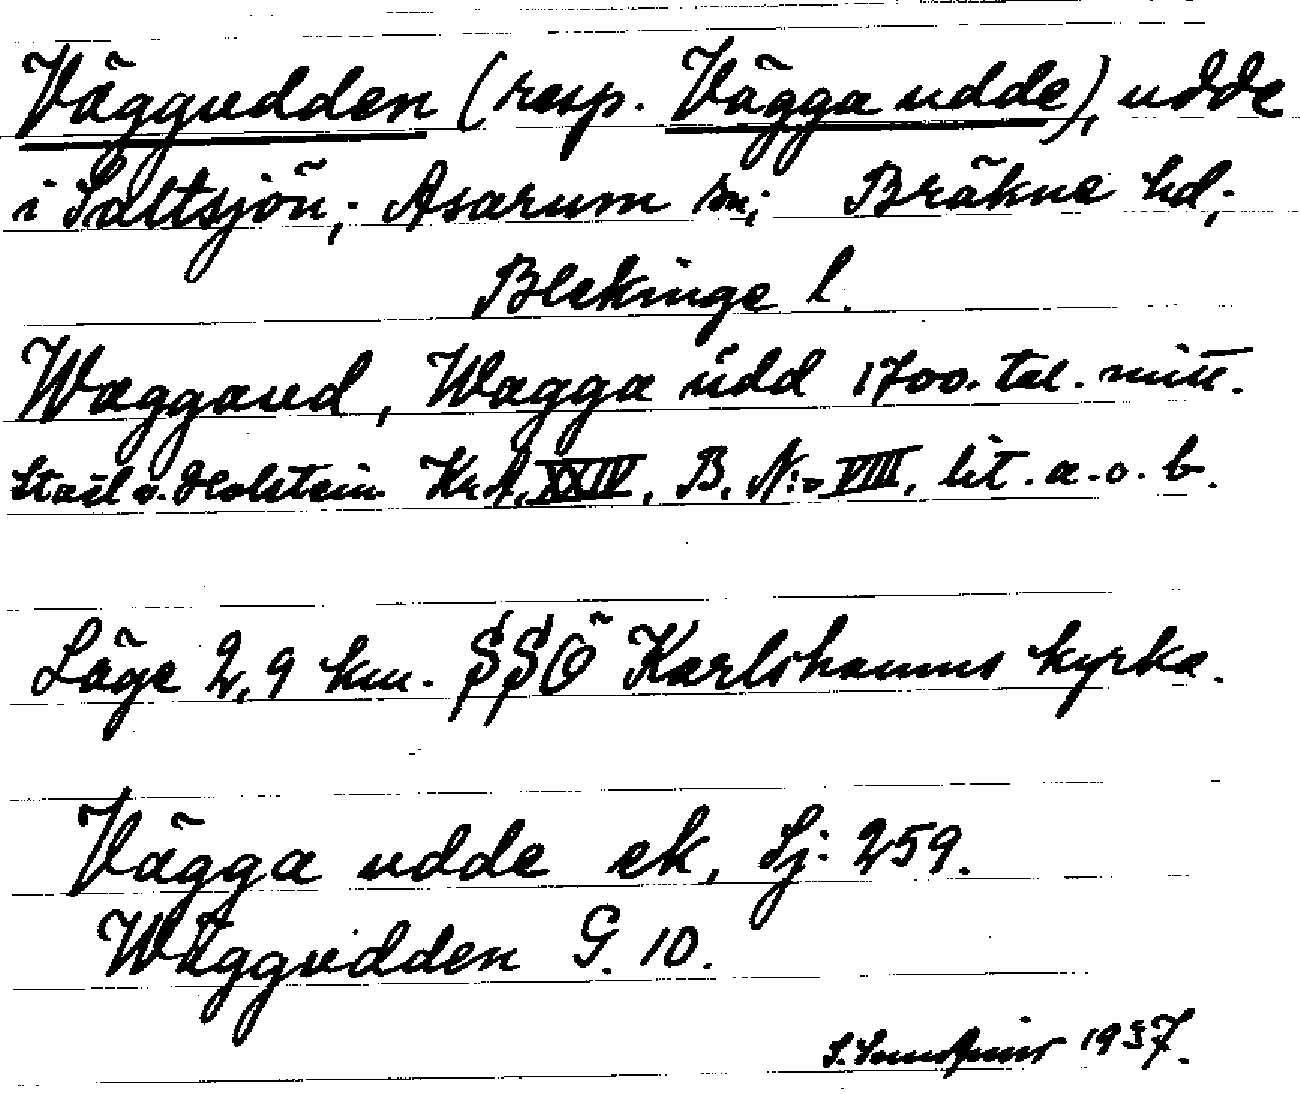 Väggudden (resp. Vägga udde), udde
i Saltsjön; Asarum sn; Bräkne hd;
Blekinge l.
Waggaud, Wagga udd 1700-tal. mitt.
Staël v. Holstein KrA, XXIV, B. N:o VIII, lit. a. o. b.
Läge 2,9 km. SSÖ Karlshamns kyrka.
Vägga udde ek, Sj. 259.
Wäggudden G. 10.
1937.